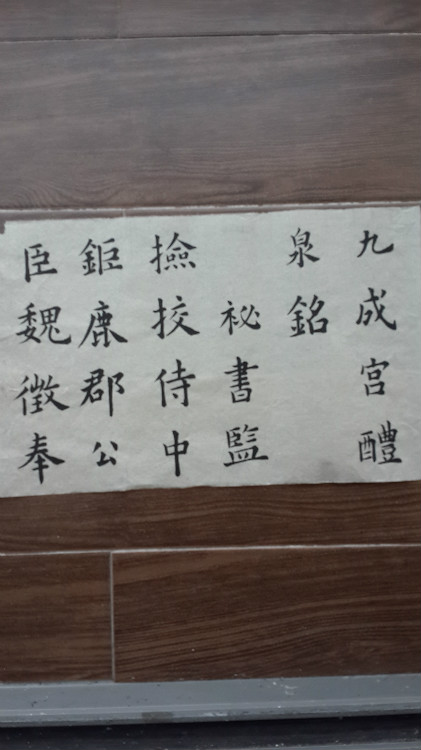 九成宮醴
泉銘
祕書監
撿挍侍中
鉅鹿郡公
臣魏徵奉